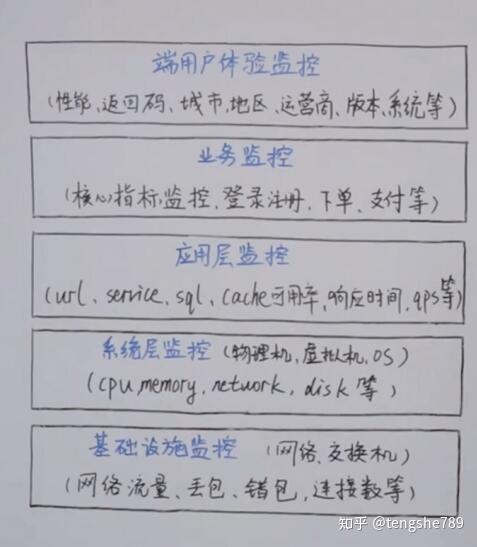 端用户体验监控
(性能、返回码、城市、地区、运营商、版本、系统等)
业务监控
(核心指标监控、登录注册、下单、支付等)
应用层监控
(url、service、sql、cache可用率、响应时间、qps等)
系统层监控 (物理机、虚拟机、OS)
(cpu、memory、network、disk等)
基础设施监控 (网络、交换机)
(网络流量、丢包、错包、连接数等)
知乎 @tengshe789